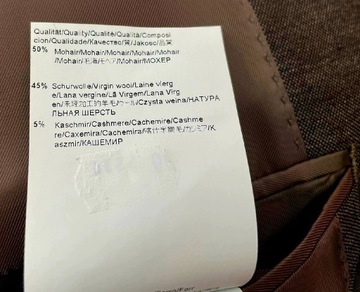 Qualität/Quality/Qualité/Qualità/Composi
cion/Qualidade/Качество/質/Jakosc/品質
50% Mohair/Mohair/Mohair/Mohair/Mohair
/Mohair/毛海/モヘア/Mohair/МОХЕР
45% Schurwolle/Virgin wool/Laine vierg
e/Lana vergine/Lã Virgem/Lana Virg
en/未經加工的羊毛/ウール/Czysta weina/НАТУРА
ЛЬНАЯ ШЕРСТЬ
5% Kaschmir/Cashmere/Cachemire/Cashme
re/Caxemira/Cachemira/喀什米爾羊毛/カシミア/K
aszmir/КАШЕМИР